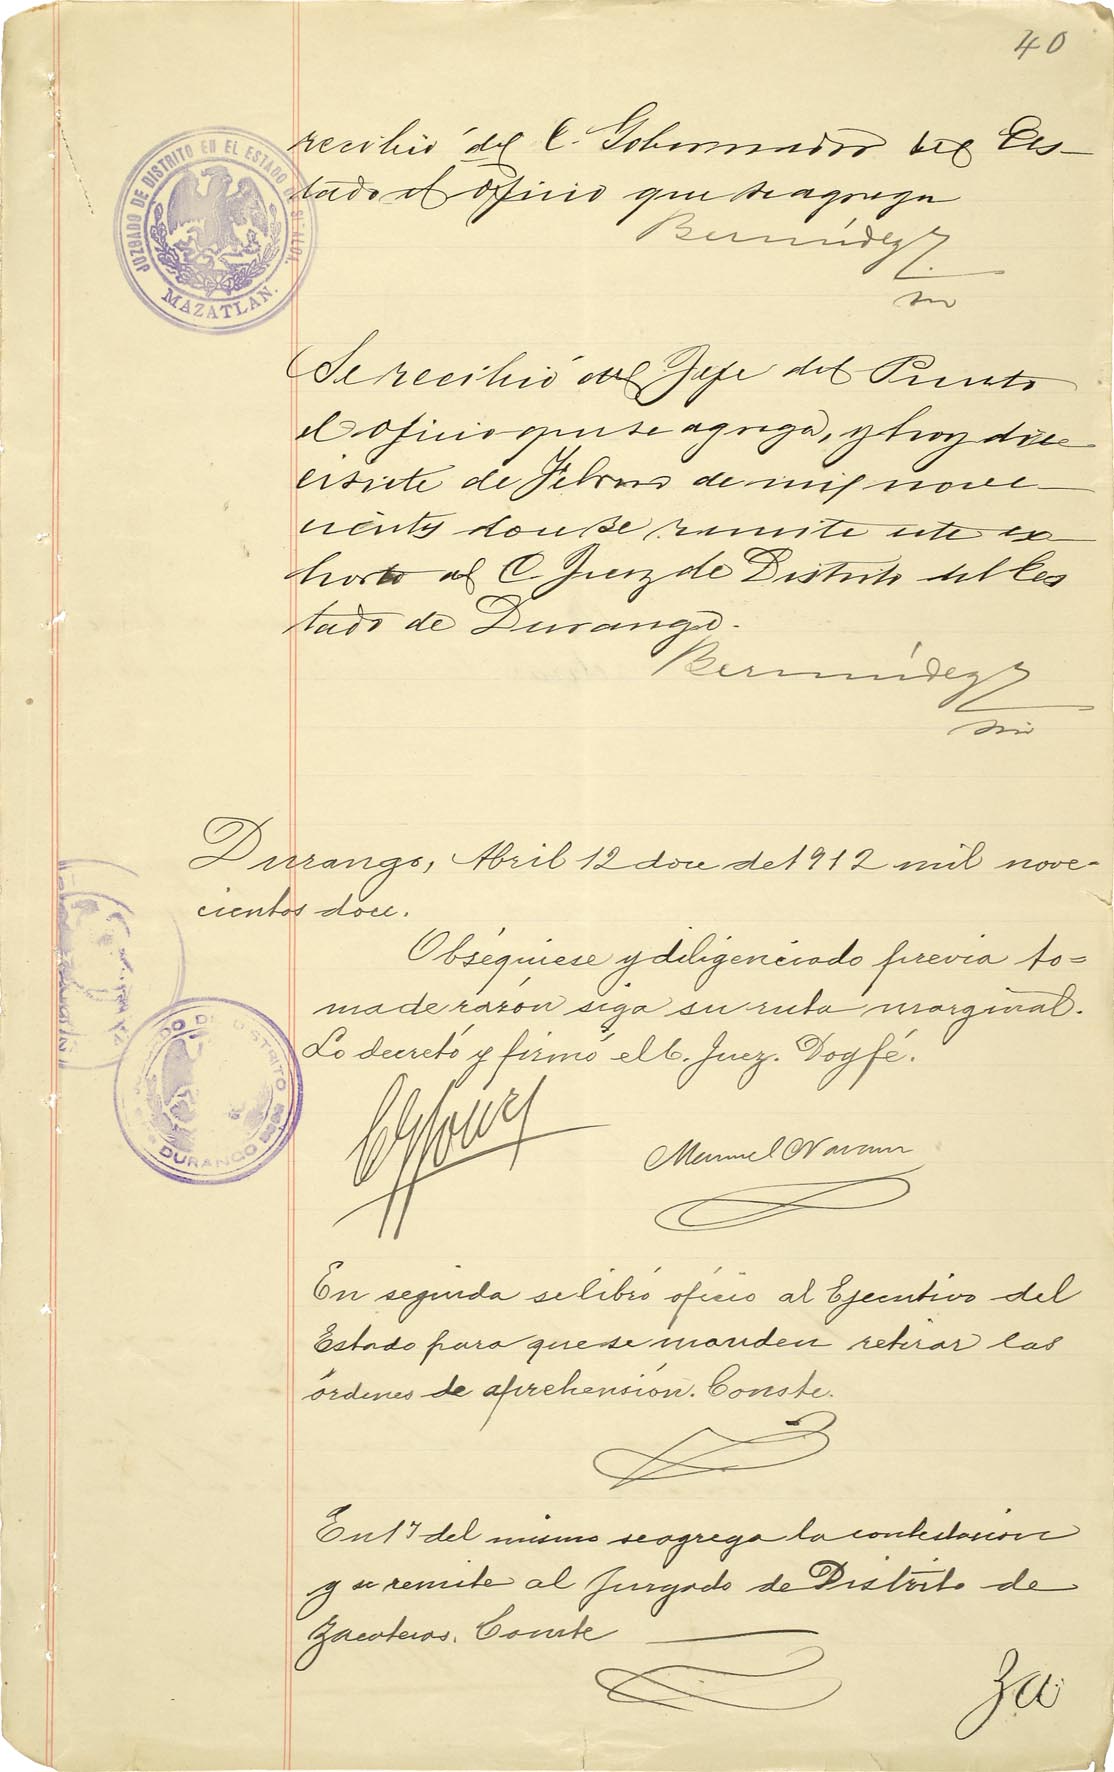 40
recibió del C. Gobernador del Es-
tado el oficio que se agrega
Bermúdez
JUZGADO DE DISTRITO EN EL ESTADO DE SINALOA.
MAZATLAN.
Se recibió del Jefe del Punto
el oficio que se agrega, y hoy diez
cisiete de Febrero de mil nove-
cientos doce se remite este ex-
horto al C. Juez de Distrito del Es
tado de Durango.
Bermúdez
Durango, Abril 12 doce de 1912 mil nove-
cientos doce.
Obséquiese y diligenciado previa to=
ma de razón siga su ruta marginal.
Lo decretó y firmó el C. Juez. Doy fé.
DO DE DISTRITO
DURANGO
Manuel Navarro
En seguida se libró oficio al Ejecutivo del
Estado para que se manden retirar las
órdenes de aprehensión. Conste.
En 17 del mismo se agrega la contestación
y se remite al Juzgado de Distrito de
Zacatecas. Conste
Za